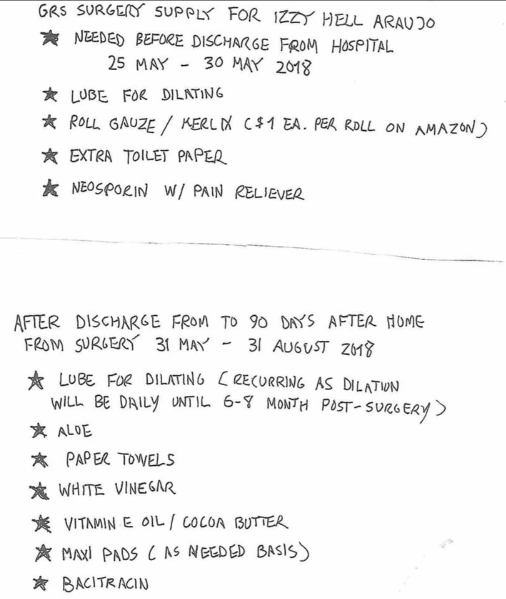 GRS SURGERY SUPPLY FOR IZZY HELL ARAUJO
★ NEEDED BEFORE DISCHARGE FROM HOSPITAL
25 MAY - 30 MAY 2018
★ LUBE FOR DILATING
★ ROLL GAUZE / KERLIX ($1 EA. PER ROLL ON AMAZON)
★ EXTRA TOILET PAPER
★ NEOSPORIN W/ PAIN RELIEVER
AFTER DISCHARGE FROM TO 90 DAYS AFTER HOME
FROM SURGERY 31 MAY - 31 AUGUST 2018
★ LUBE FOR DILATING (RECURRING AS DILATION
WILL BE DAILY UNTIL 6-8 MONTH POST-SURGERY)
★ ALOE
★ PAPER TOWELS
★ WHITE VINEGAR
★ VITAMIN E OIL / COCOA BUTTER
★ MAXI PADS (AS NEEDED BASIS)
★ BACITRACIN